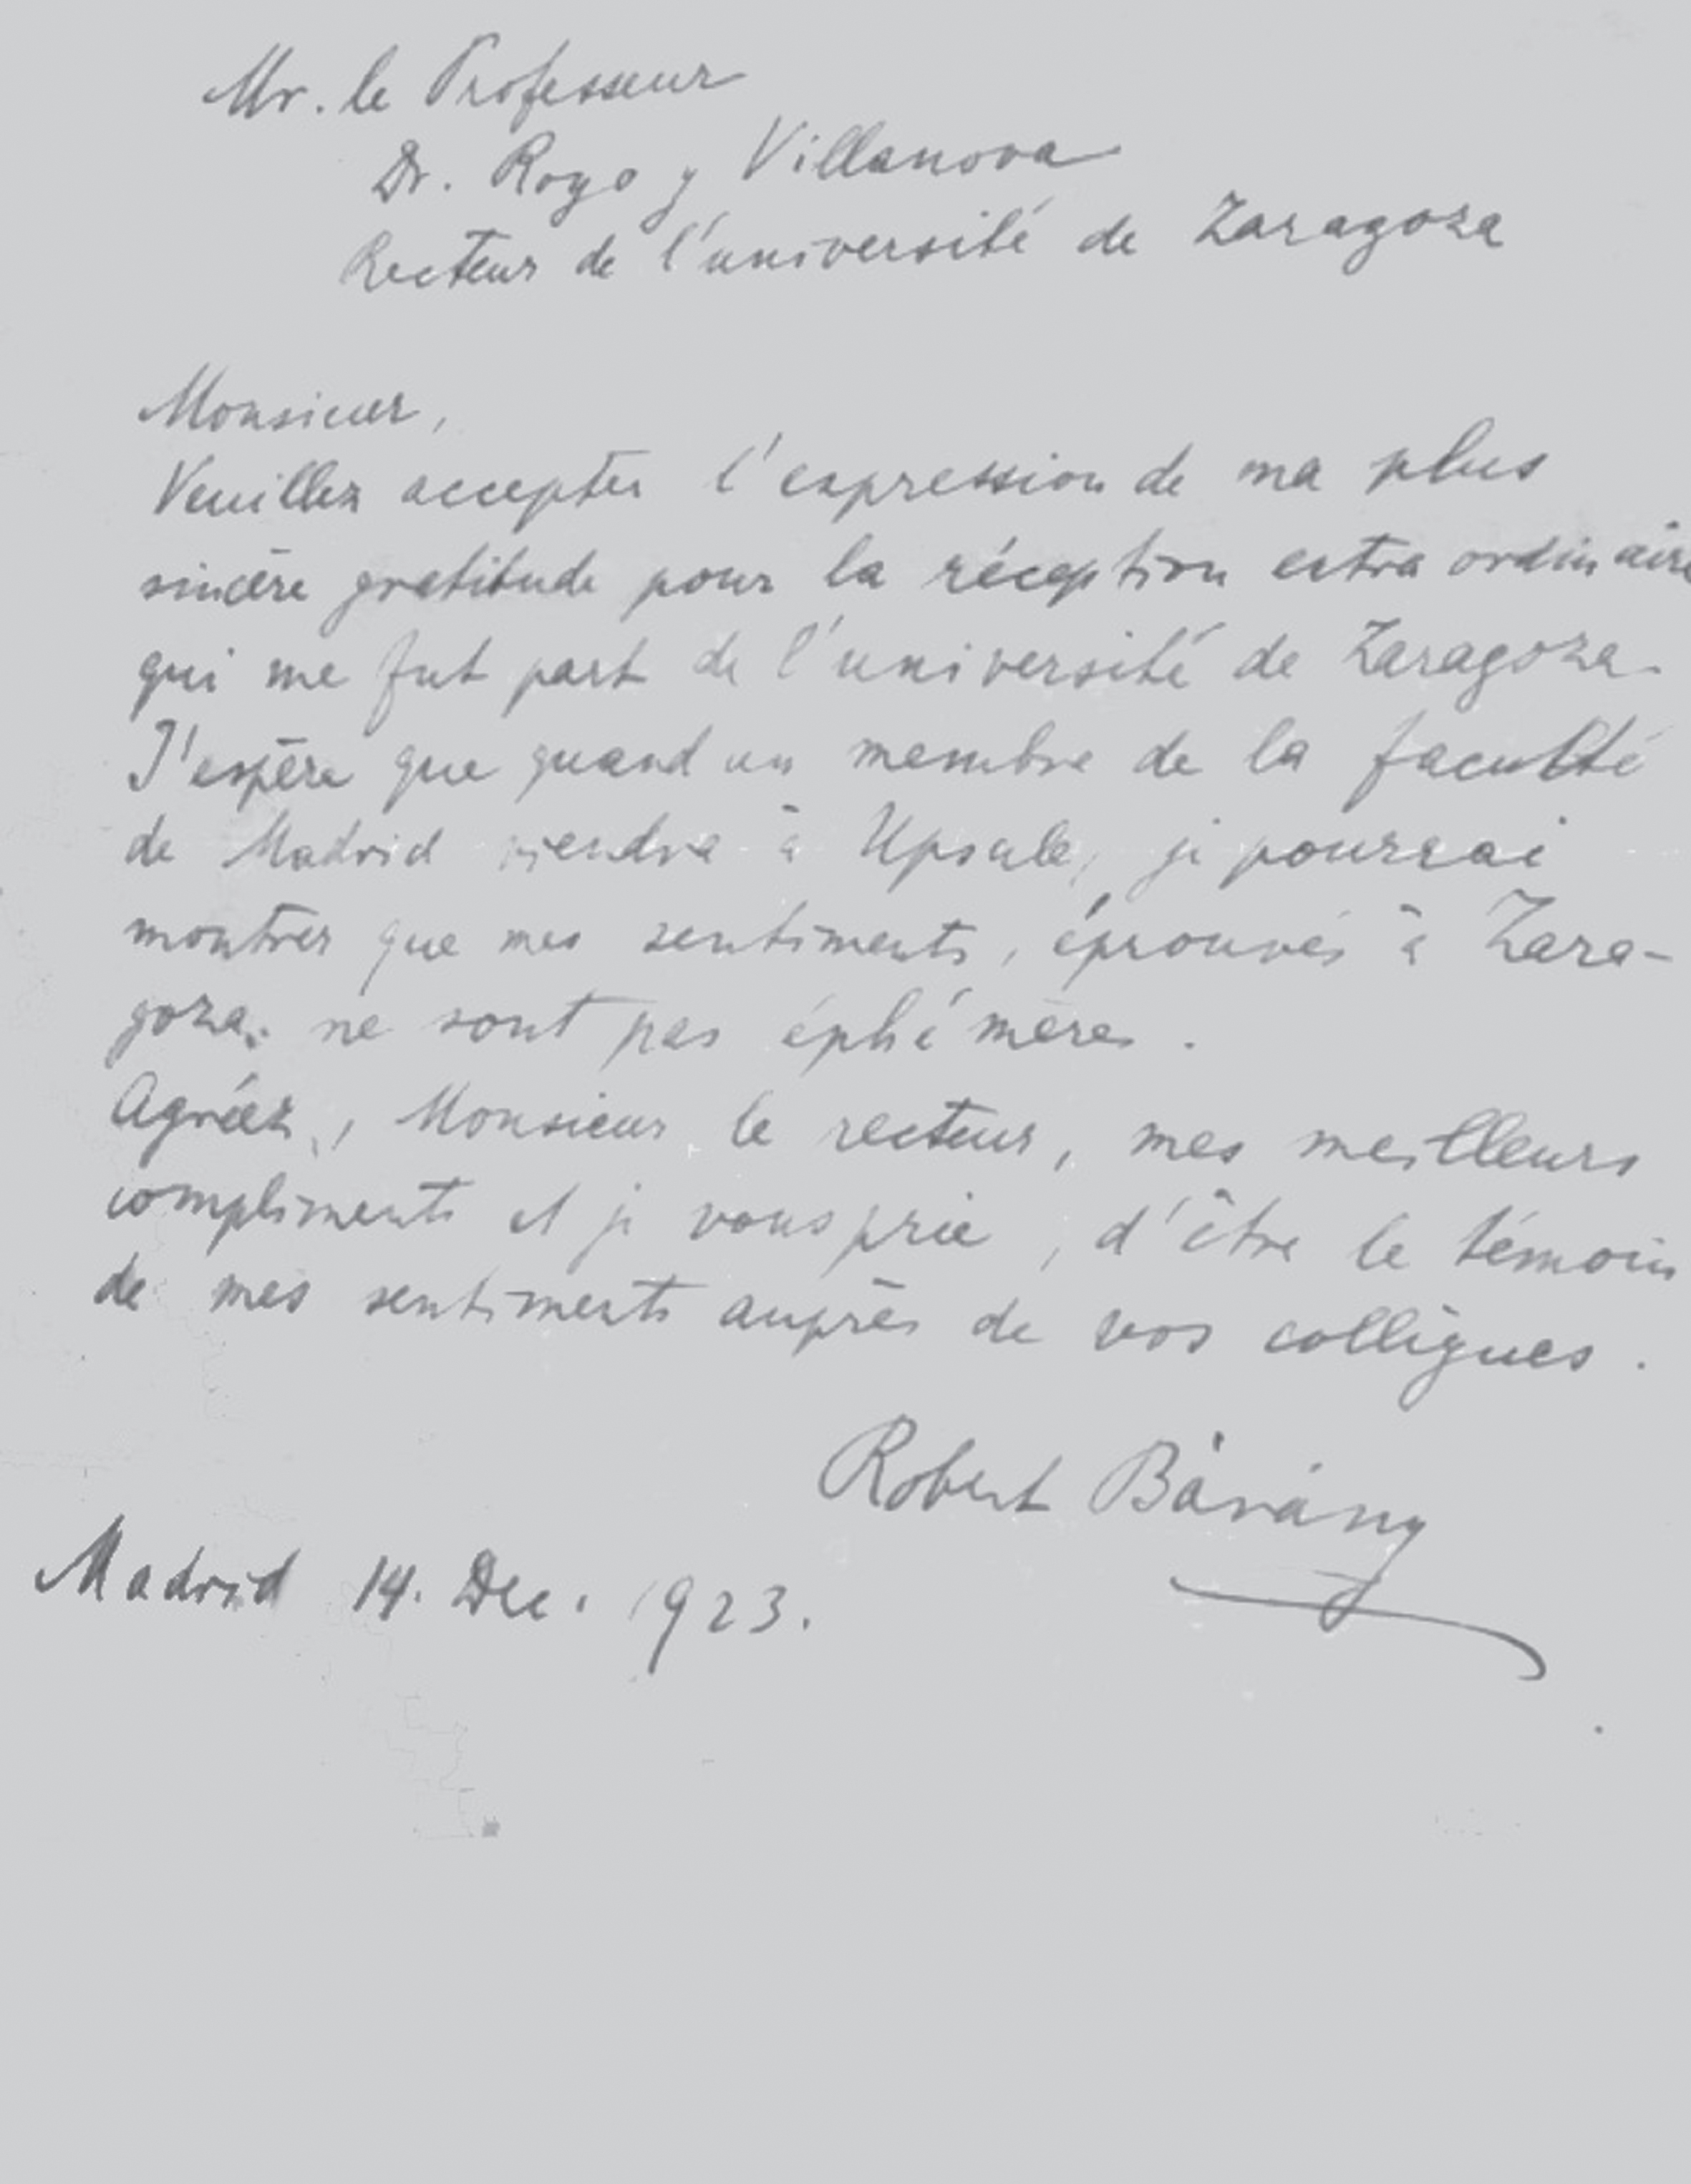 Mr. le Professeur
Dr. Royo y Villanova
Recteur de l'université de Zaragoza
Monsieur,
Veuillez accepter l'expression de ma plus
sincère gratitude pour la réception extra ordinaire
qui me fut part de l'université de Zaragoza.
J'espère que quand un membre de la faculté
de Madrid viendra à Upsala, je pourrai
montrer que mes sentiments, éprouvés à Zara-
goza. ne sont pas éphémères.
Agréez, Monsieur le recteur, mes meilleurs
compliments et je vous prie, d'être le témoin
de mes sentiments auprès de vos collègues.
Robert Bárány
Madrid 14. Dec. 1923.